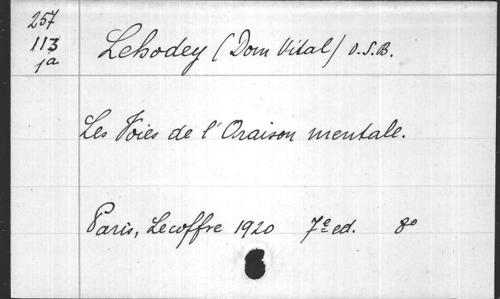 257
113
1a
Lehodey (Dom Vital) O.S.B.
Les Voies de l'Oraison mentale.
Paris, Lecoffre 1920 7e ed. 8o